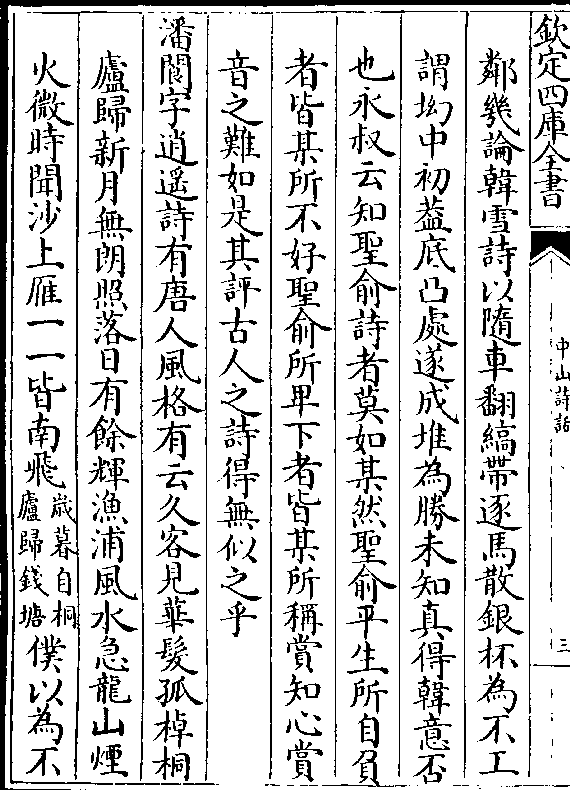 欽定四庫全書
中山詩話
三
鄰幾論韓雪詩以隨車翻縞帶逐馬散銀杯為不工
謂坳中初葢底凸處遂成堆為勝未知真得韓意否
也永叔云知聖俞詩者莫如某然聖俞平生所自負
者皆某所不好聖俞所卑下者皆某所稱賞知心賞
音之難如是其評古人之詩得無似之乎
潘閬字逍遥詩有唐人風格有云久客見華髮孤棹桐
廬歸新月無朗照落日有餘輝漁浦風水急龍山煙
火微時聞沙上雁一一皆南飛歲暮自桐廬歸錢塘僕以為不